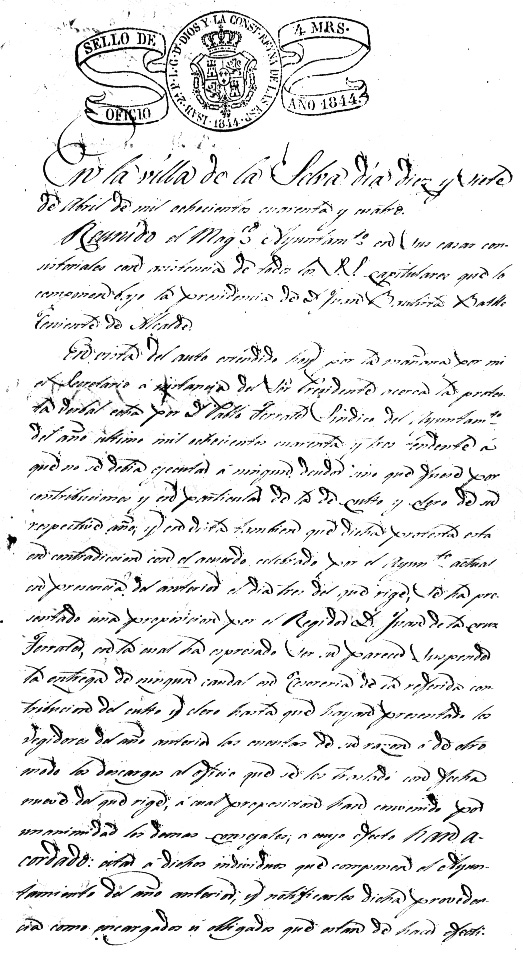 SELLO DE OFICIO
ISAB. 2ª P. L. G. D DIOS Y LA CONST. REYNA DE LAS ESP. 1844.
4 MRS. AÑO 1844.
En la villa de la Selva dia diez y siete
de Abril de mil ochocientos cuarenta y cuatro.
Reunido el Mag.co Ayuntam.to en sus casas con-
sistoriales con asistencia de todos los S.S. capitulares que lo
componen bajo la presidencia de D. Juan Bautista Batlle
Teniente de Alcalde.
En vista del auto estendido hoy por la mañana por mi
el Secretario á instancia del Sor Presidente acerca la protes-
ta verbal esta por D. Pablo Ferraté Sindico del Ayuntam.to
del año ultimo mil ochocientos cuarenta y tres tendente á
que no se debia ejecutar á ningun deudor sino que fuese por
contribuciones y en particular de la de culto y clero de su
respective año, y en vista tambien que dicha protesta esta
en contradiccion con el acuerdo celebrado por el Ayunt.to actual
en presencia del anterior el dia tres del que rige, se ha pre-
sentado una proposicion por el Regidor D. Juan de la Cruz
Ferraté, en la cual ha espresado ser su parecer suspender
la entrega de ningun caudal en Tesoreria de la referida con-
tribucion del culto y clero hasta que hayan presentado los
regidores del año anterior las cuentas de su razon ó de otro
modo los descargos al oficio que se les traslado con fecha
nueve del que rige, á cual proposicion han convenido por
unanimidad los demas concejales; a cuyo efecto han a-
cordado: citar a dichos individuos que componian el Ayun-
tamiento del año anterior, y notificarles dicha proveden-
cia como encargados ú obligados que estan de hacer efecti-